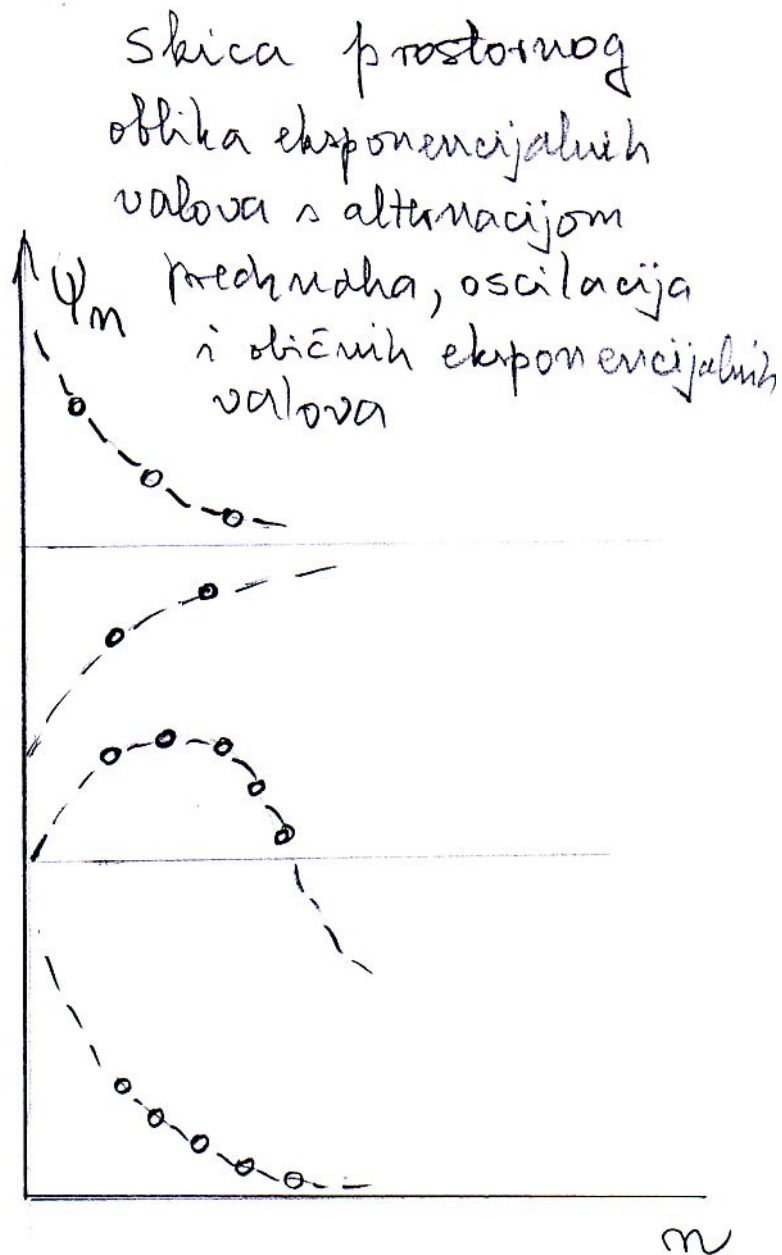 Skica prostornog
oblika eksponencijalnih
valova s alternacijom
ψn predznaka, oscilacija
i običnih eksponencijalnih
valova
n